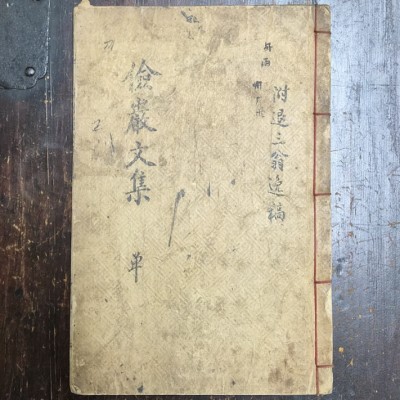 附退三翁逸稿
儉巖文集 單